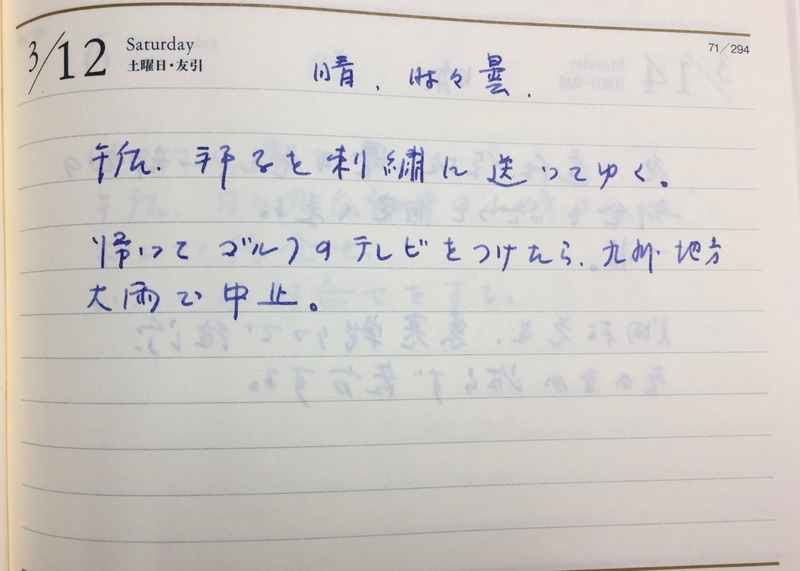 3/12 Saturday 71/294
土曜日・友引
晴、時々曇、
午后、邦子を刺繍に送ってゆく。
帰ってゴルフのテレビをつけたら、九州地方
大雨で中止。